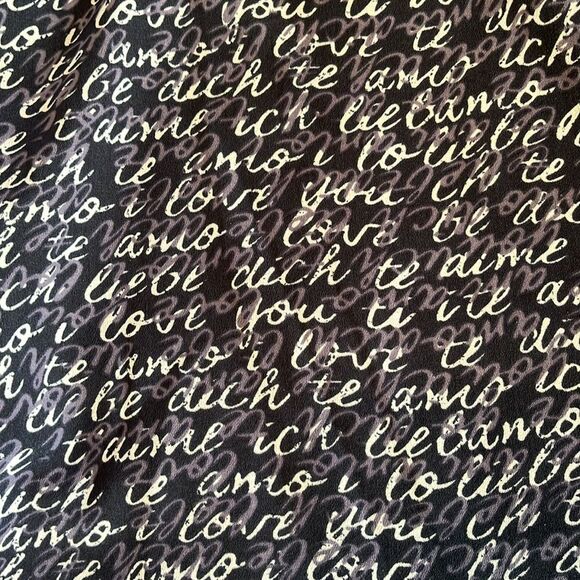 amo i love you ti te dich
h te amo i love te ich
be dich te amo
e t'aime ich liebamo
dich te amo i lo liebe
amo i love you ch te
h te amo i love be dic
ch liebe dich te aime
mo i love you ti ite a
h te amo i love te dic
be dich te amo ic
e t'aime ich liebamo
dich te amo i lo liebe
amo i love you ch
te amo i love be